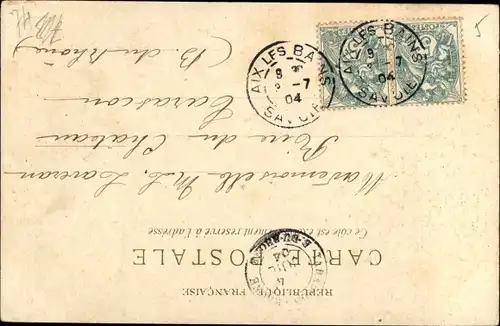 RÉPUBLIQUE FRANÇAISE
CARTE POSTALE
Ce côté est exclusivement réservé à l'adresse
Mademoiselle M. L. Laveran
Rue du Château
Tarascon
(B. du Rhône)
AIX-LES-BAINS
8
-7
04
SAVOIE
AIX-LES-BAINS
8
-7
04
SAVOIE
POSTES
B.-DU-RHONE
04
5